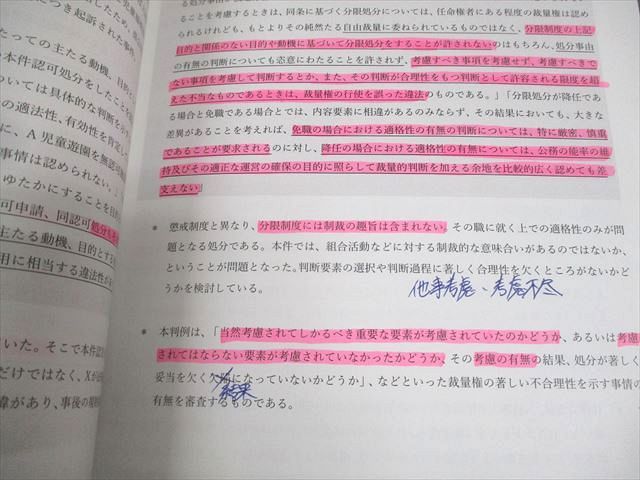 ることを考慮するときは、同条に基づく分限処分については、任命権者にある程度の裁量権は認め
られるけれども、もとよりその純然たる自由裁量に委ねられているものではなく、分限制度の上記
目的と関係のない目的や動機に基づいて分限処分をすることが許されないのはもちろん、処分事由
の有無の判断についても恣意にわたることを許されず、考慮すべき事項を考慮せず、考慮すべきで
ない事項を考慮して判断するとか、また、その判断が合理性をもつ判断として許容される限度を超
えた不当なものであるときは、裁量権の行使を誤った違法のものである。」「分限処分が降任であ
る場合と免職である場合とでは、内容要素に相違があるのみならず、その結果においても、大きな
差異があることを考えれば、免職の場合における適格性の有無の判断については、特に厳密、慎重
であることが要求されるのに対し、降任の場合における適格性の有無については、公務の能率の維
持及びその適正な運営の確保の目的に照らして裁量的判断を加える余地を比較的広く認めても差
支えない」
* 懲戒制度と異なり、分限制度には制裁の趣旨は含まれない。その職に就く上での適格性のみが問
題となる処分である。本件では、組合活動などに対する制裁的な意味合いがあるのではないか、
ということが問題となった。判断要素の選択や判断過程に著しく合理性を欠くところがないかど
うかを検討している。
他事考慮・考慮不尽
* 本判例は、「当然考慮されてしかるべき重要な要素が考慮されていたのかどうか、あるいは考慮
されてはならない要素が考慮されていなかったかどうか、その考慮の有無の結果、処分が著しく
妥当を欠く欠陥になっていないかどうか」、などといった裁量権の著しい不合理性を示す事情の
結果
有無を審査するものである。
につき起訴された事件
たっての主たる動機、目的と
本件認可処分をしたことを
ついては具体的な判断を示
の適法性、有効性を肯定し
に、A児童遊園を無認可
事情は認められない。」
ゆたかにすることを目的
可申請、同認可処分もそ
主たる動機、目的とする
用に相当する違法性が
いた。そこで本件認
だけではなく、Xが
緯があり、事後の規制